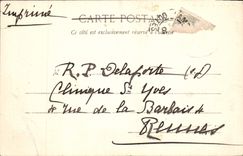 CARTE POSTALE
Ce côté est exclusivement réservé à l'adresse
Imprimé
R. P. Delaporte
Clinique St Yves
4 rue de la Barbais 4
Rennes